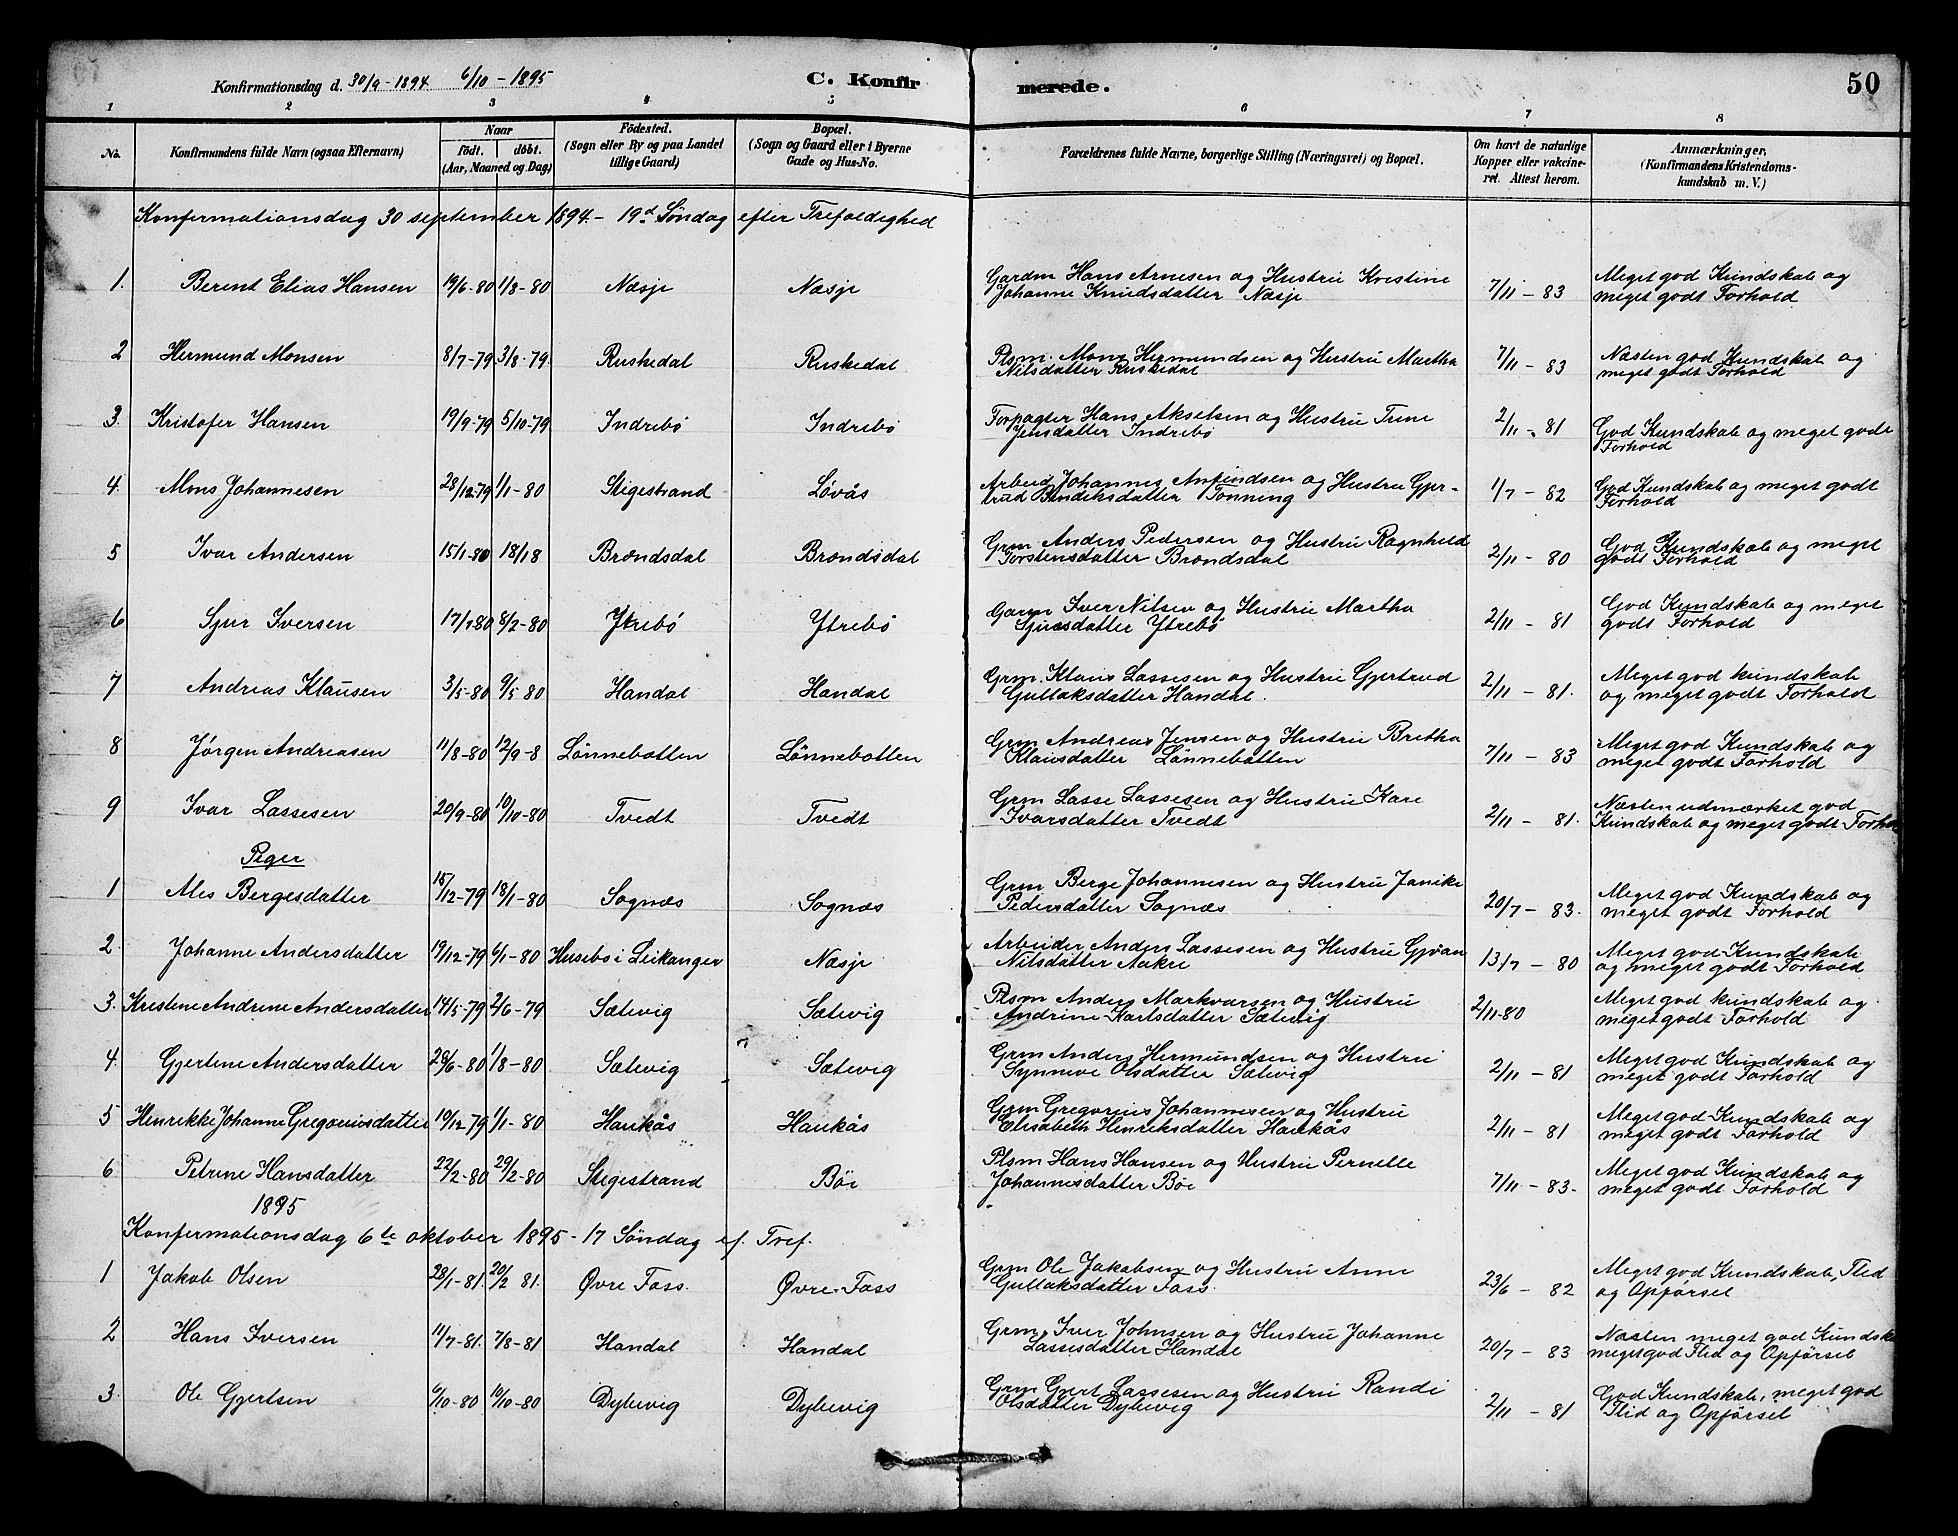 Konfirmationsdag d. 30/9 - 1894 6/10 - 1895 C. Konfir merede. 50
1 2 3 4 5 6 7 8
No. Konfirmandens fulde Navn (ogsaa Efternavn) Naar født. døbt. (Aar, Maaned og Dag) Fødested. (Sogn eller By og paa Landet tillige Gaard) Bopæl. (Sogn og Gaard eller i Byerne Gade og Hus-No. Forældrenes fulde Navne, borgerlige Stilling (Næringsvei) og Bopæl. Om havt de naturlige Kopper eller vakcineret. Attest herom. Anmærkninger, (Konfirmandens Kristendomskundskab m. V.)
Konfermationsdag 30 september 1894 - 19d Søndag efter Trefoldighed
1. Berent Elias Hansen 19/6-80 1/8-80 Næsje Næsje Gardm Hans Arnesen og Hustru Kristine Johanne Knudsdatter Næsje 7/11 - 83 Meget god Kundskab og meget godt Forhold
2 Hermund Monsen 8/7-79 3/8-79. Ruskedal Ruskedal Plsm. Mons Hermundsen og Hustru Martha Nilsdatter Ruskedal 7/11 - 83 Næsten god Kundskab og meget godt Forhold
3. Kristofer Hansen 19/9-79 5/10-79 Indrebø Indrebø Forpagter Hans Akselsen og Hustru Trine Jensdatter Indrebø 2/11 - 81 God Kundskab og meget godt Forhold
4. Mons Johannesen 28/12-79 1/1-80 Stigestrand Løvås Arbeid Johannes Anfindsen og Hustru Gjertrud Bendiksdatter Tonning 1/7 - 82 God Kundskab og meget godt Forhold
5 Ivar Andersen 15/1-80 18/18 Brøndsdal Brøndsdal Grm Anders Pedersen og Hustru Ragnhild Torstensdatter Brøndsdal 2/11 - 80 God Kundskab og meget godt Forhold
6 Sjur Iversen 17/1-80 8/2-80 Ytrebø Ytrebø Garm Iver Nilsen og Hustru Martha Sjursdatter Ytrebø 2/11 - 81 God Kundskab og meget godt Forhold
7 Andreas Klausen 3/5-80 9/5-80 Handal Handal Grm. Klaus Lassesen og Hustru Gjertrud Gullaksdatter Handal. 2/11 - 81. Meget god kundskab og meget godt Forhold
8 Jørgen Andreasen 11/8-80 12/9-8 Lønnebotten Lønnebotten Grm Andreas Jensen og Hustru Bretha Klausdatter Lønnebotten 7/11 - 83 Meget god Kundskab og meget godt Forhold
9 Ivar Lassesen 20/9-80 10/10-80 Tvedt Tvedt Grm Lasse Lassesen og Hustru Kari Ivarsdatter Tvedt 2/11 - 81. Næsten udmærket god Kundskab og meget godt Forho
Piger
1 Ales Bergesdatter 15/12-79 18/1-80 Sognæs Sognæs Grm Berge Johannesen og Hustru Janike Pedersdatter Sognæs 20/7 - 83. Meget god Kundskab og meget godt Forhold
2. Johanne Andersdatter 19/12-79 6/1-80 Husebø i Leikanger Næsje Arbeider Anders Lassesen og Hustru Nilsdatter Aakre 13/7 - 80 Meget god Kundskab og meget godt Forhold
3. Kristine Andrine Andersdatter 14/5-79 2/6-79 Sætevig Sætevig Plsm Anders Markvarsen og Hustru Andrine Karlsdatter Sætevig 2/11-80 Meget god kundskab og meget godt Forhold
4. Gjertine Andersdatter 28/6-80 1/8-80 Sætevig Sætevig Grm Anders Hermundsen og Hustru Synneve Olsdatter Sætevig 2/11 - 81 Meget god Kundskab og meget godt Forhold
5 Henrikke Johanne Gregoriusdatter 19/12-79 1/1-80 Haukås Haukås Grm Gregorius Johannesen og Hustru Elisabeth Henriksdatter Haukås 2/11 - 81 Meget god Kundskab og meget godt Forhold
6 Petrine Hansdatter 22/2-80 29/2-80 Stigestrand Böe Plsm Hans Hansen og Hustru Pernelle Johannesdatter Böe 7/11 - 83. Meget god Kundskab og meget godt Forhold
1895
Konfermationsdag 6te oktober 1895 - 17 Søndag ef. Tref.
1 Jakob Olsen 28/1-81. 20/2 81. Øvre Fass. Øvre-Fass Grm Ole Jakobsen og Hustru Anne Gullaksdatter Fass. 23/6 - 82 Meget god Kundskab, Flid og Opførsel
2 Hans Iversen 11/7-81. 7/8-81 Handal Handal Grm. Iver Johnsen og Hustru Johanne Lassesdatter Handal 20/7 - 83 Næsten meget god Kundsk meget god Flid og Opførsel
3. Ole Gjertsen 6/10-80 10/10-80 Dybevig Dybevig Grm Gjert Lassesen og Hustru Randi Olsdatter Dybevig 2/11 - 81 God Kundskab, meget god Flid og Opførsel